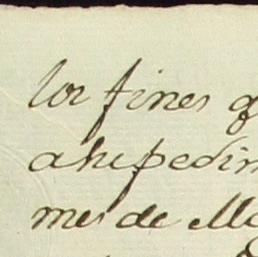 los fines q
a su pedim
mes de Ma